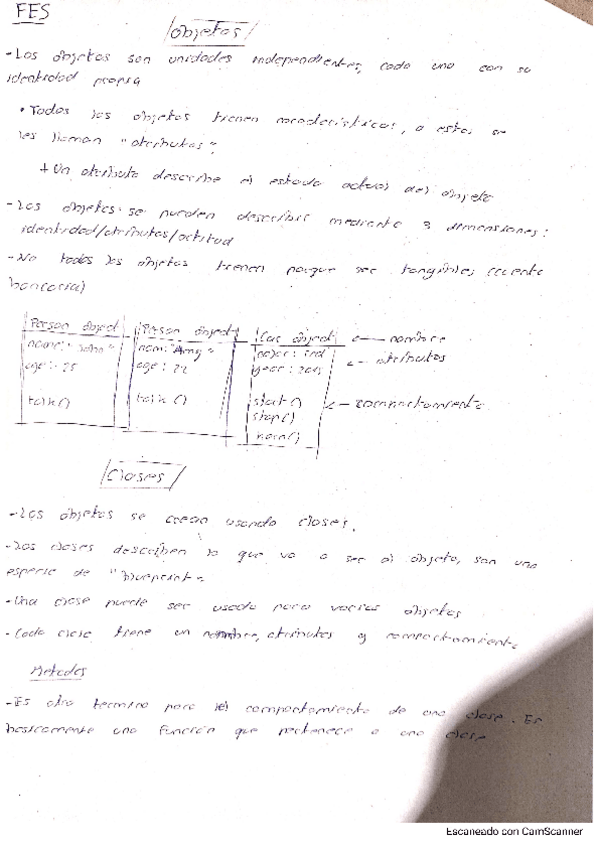 FES
Objetos
- Los objetos son unidades independientes, cada uno con su
identidad propia
• Todos los objetos tienen características, a estas se
les llaman "atributos".
+ Un atributo describe el estado actual del objeto
- Los objetos se pueden describir mediante 3 dimensiones:
identidad/atributos/actitud
- No todos los objetos tienen porque ser tangibles (cuenta
bancaria)
Person object Person object Car object <— nombre
name: "John" nam: "Amy" <- atributos
age: 25 age: 22 year: 2015
talk() talk() start() <- comportamiento
stop()
Clases
- Los objetos se crean usando clases.
- Las clases describen lo que va a ser el objeto, son una
especie de "blueprint".
- Una clase puede ser usada para varios objetos
- Cada clase tiene un nombre, atributos y comportamiento
Metodos
- Es otro termino para el comportamiento de una clase. Es
basicamente una función que pertenece a una clase
Escaneado con CamScanner